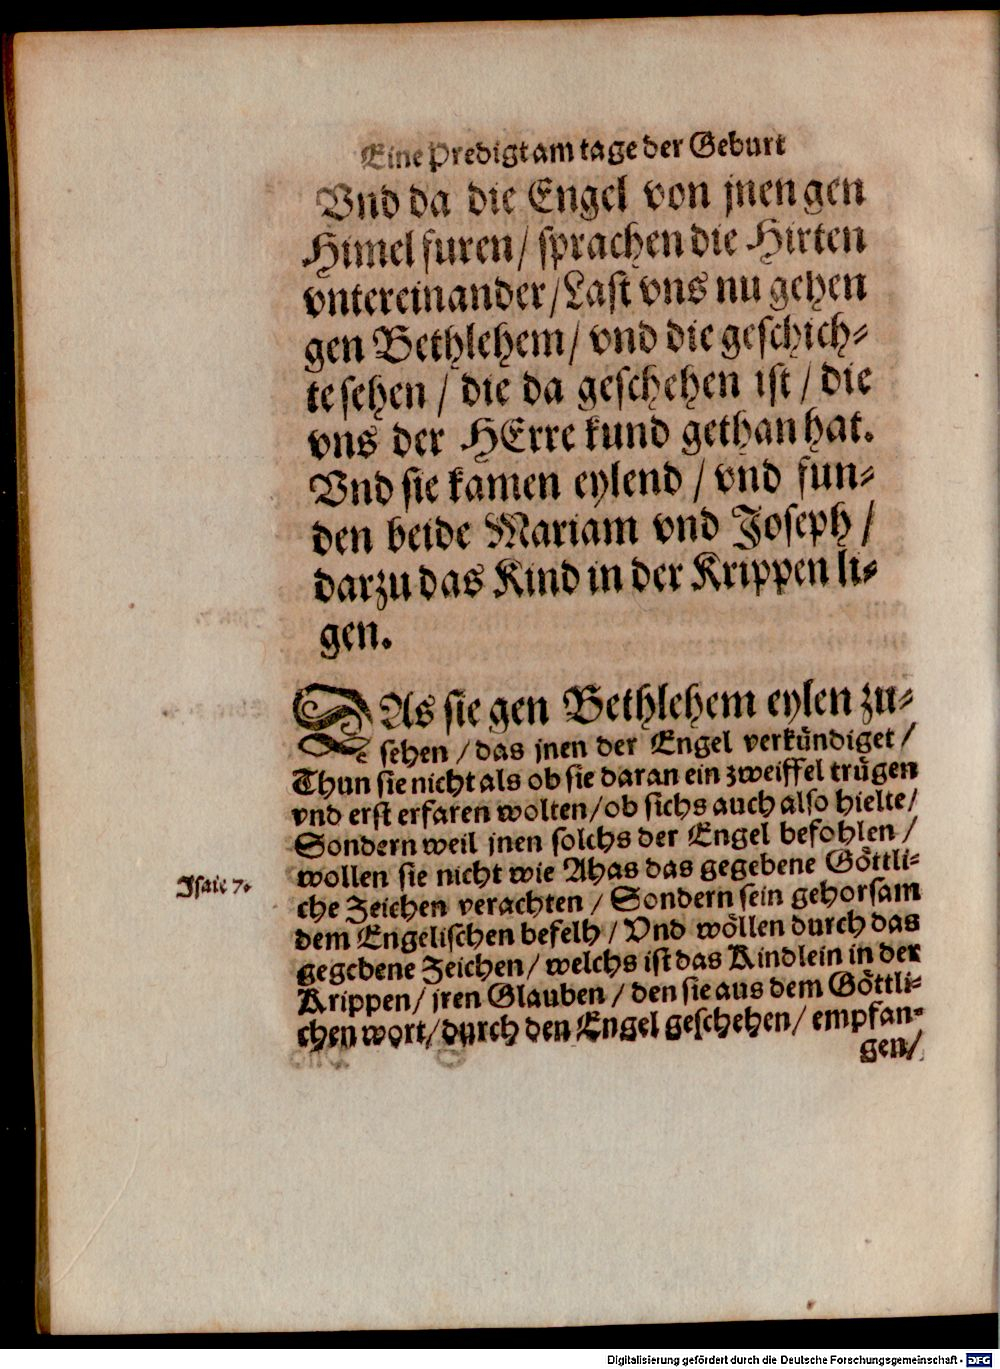 Eine Predigt am tage der Geburt
Vnd da die Engel von jnen gen
Himel furen/ sprachen die Hirten
vntereinander/ Last vns nu gehen
gen Bethlehem/ vnd die geschich-
te sehen / die da geschehen ist / die
vns der HErre kund gethan hat.
Vnd sie kamen eylend / vnd fun-
den beide Mariam vnd Joseph /
darzu das Kind in der Krippen li-
gen.
DAs sie gen Bethlehem eylen zu-
sehen / das jnen der Engel verkündiget /
Thun sie nicht als ob sie daran ein zweiffel trügen
vnd erst erfaren wolten/ ob sichs auch also hielte/
Sondern weil jnen solchs der Engel befohlen /
wollen sie nicht wie Ahas das gegebene Göttli-
Isaie 7.
che Zeichen verachten / Sondern sein gehorsam
dem Engelischen befelh / Vnd wöllen durch das
gegebene Zeichen/ welchs ist das Kindlein in der
Krippen/ jren Glauben / den sie aus dem Göttli-
chen wort/ durch den Engel geschehen/ empfan-
gen/
Digitalisierung gefördert durch die Deutsche Forschungsgemeinschaft - DFG